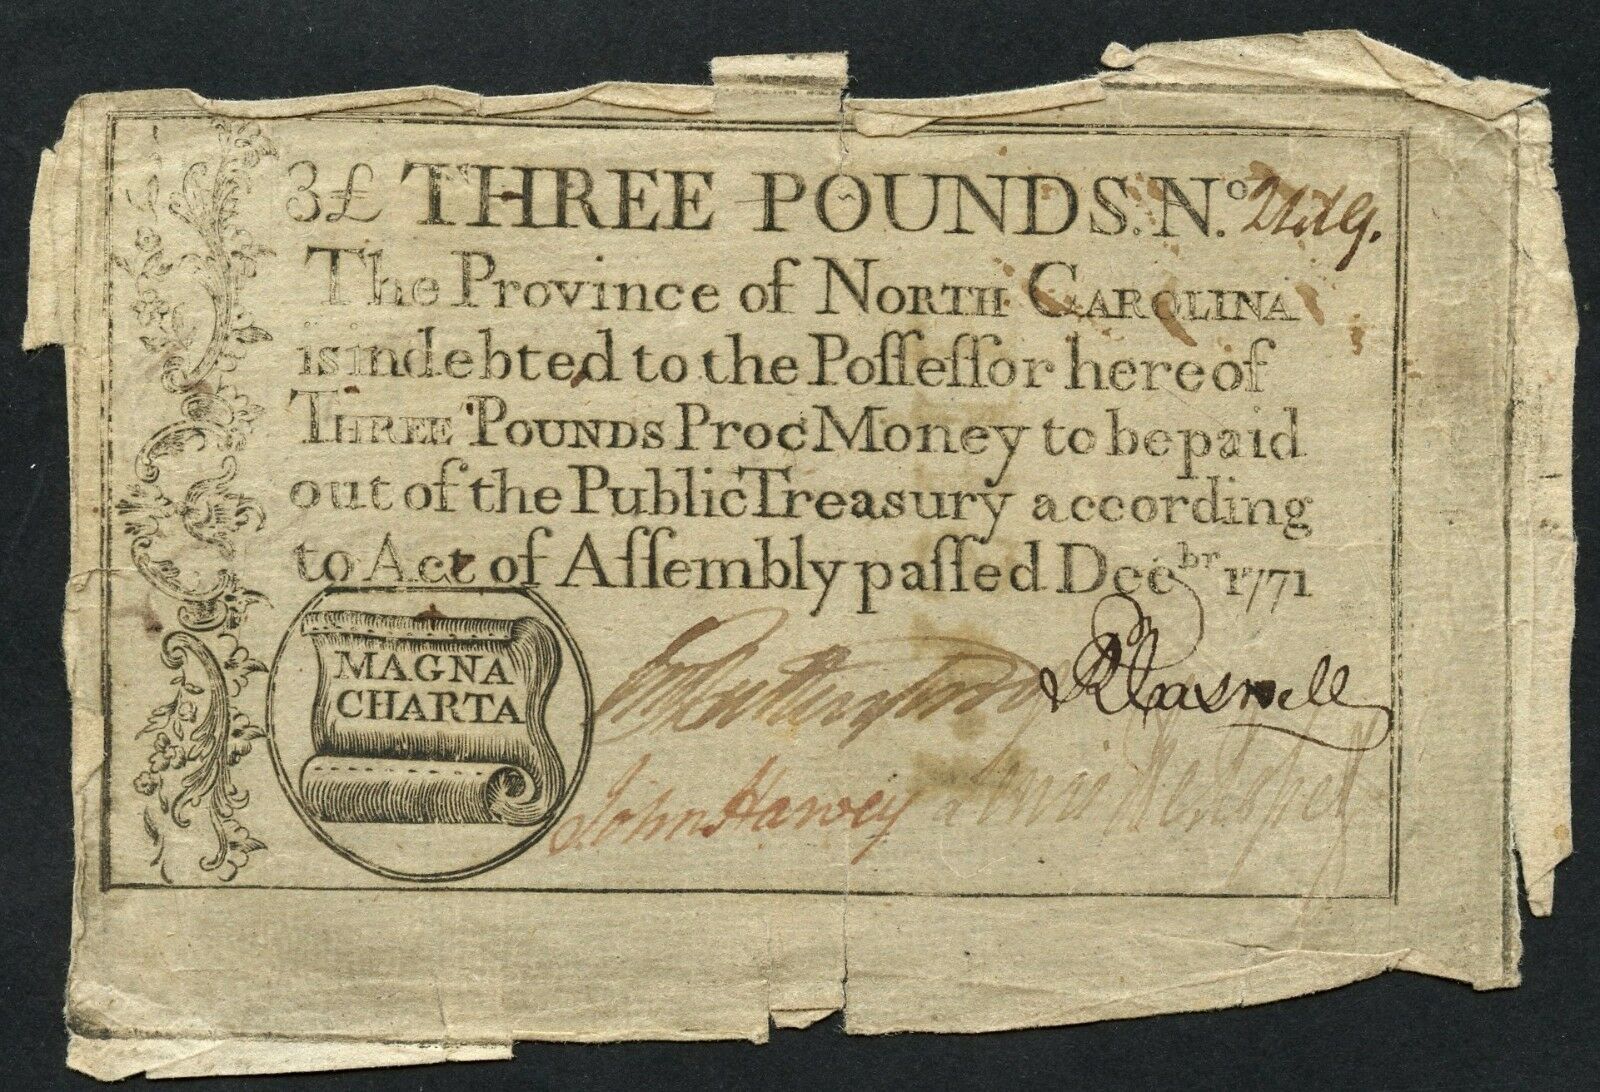 3£ THREE POUNDS. Nº
The Province of NORTH CAROLINA
is indebted to the Poſſeſſor hereof
THREE POUNDS Proc Money to be paid
out of the Public Treasury according
to Act of Aſſembly paſſed Decbr 1771
MAGNA
CHARTA
RCaswell
John Harvey